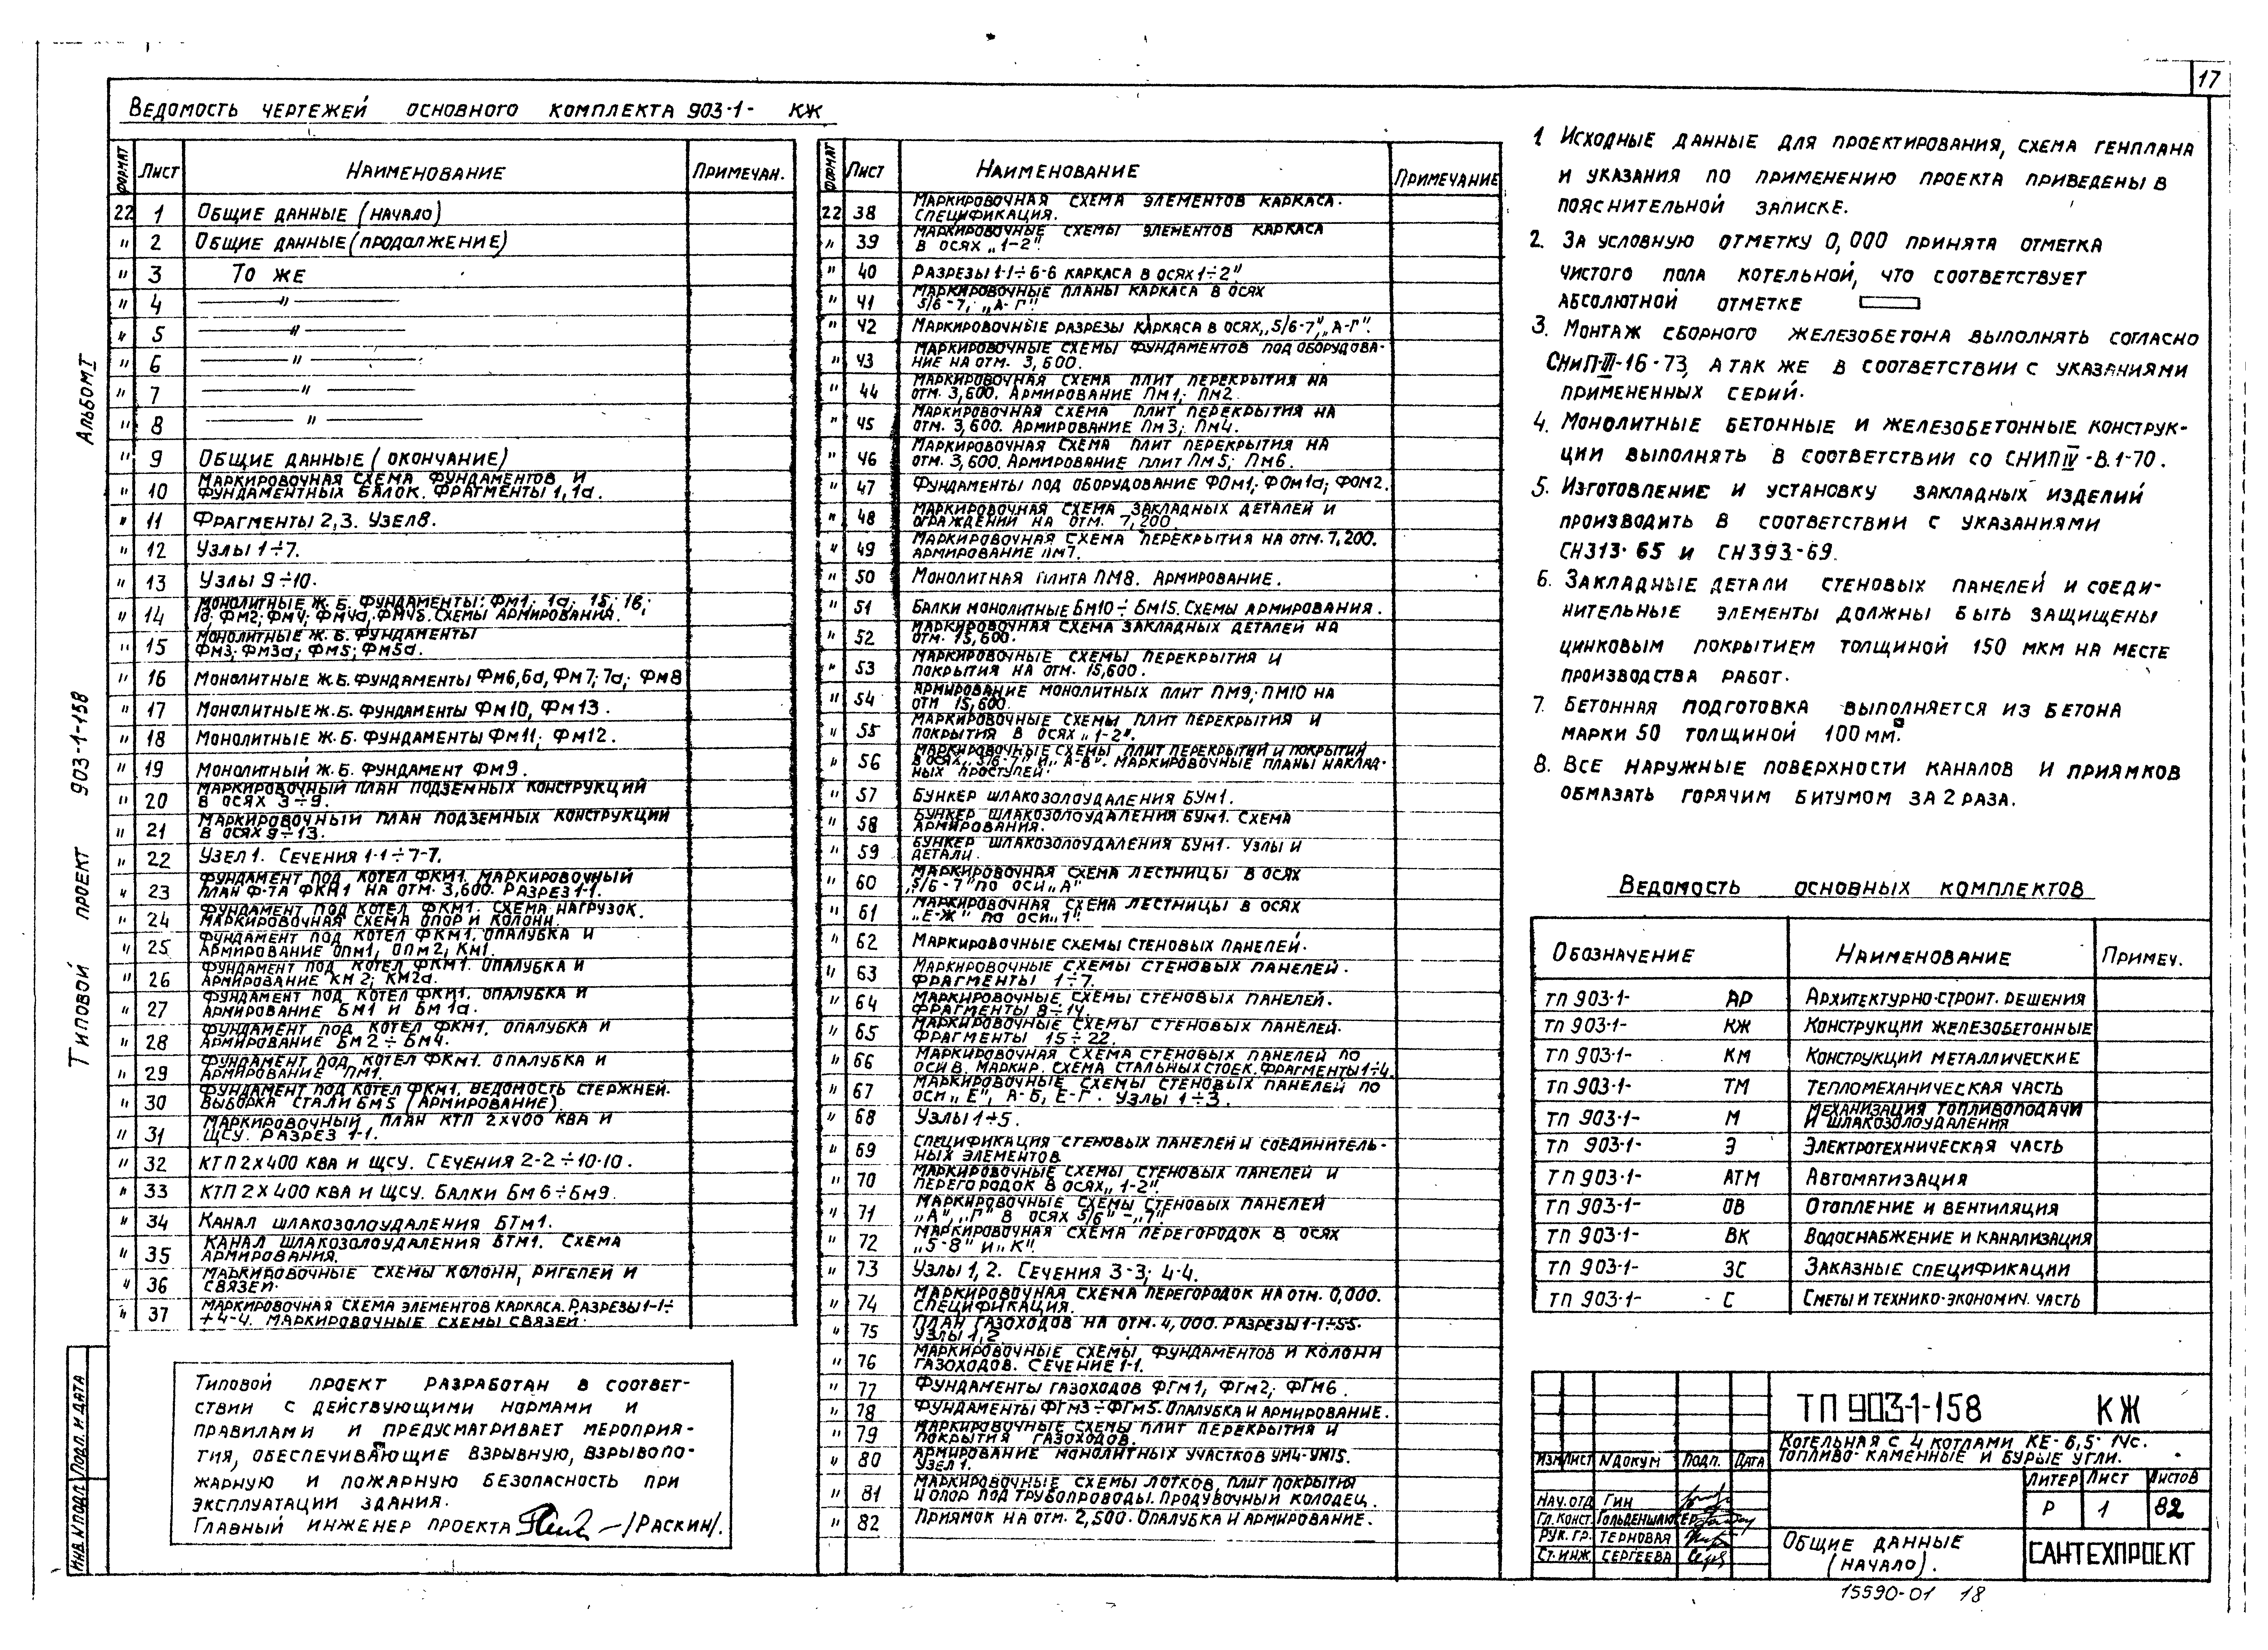 17
Ведомость чертежей основного комплекта 903-1- КЖ
Формат Лист Наименование Примечан.
22 1 Общие данные (начало)
" 2 Общие данные (продолжение)
" 3 То же
" 4 — " —
" 5 — " —
" 6 — " —
" 7 — " —
" 8 — " —
" 9 Общие данные (окончание)
" 10 Маркировочная схема фундаментов и
фундаментных балок. Фрагменты 1, 1а.
" 11 Фрагменты 2,3. Узел 8.
" 12 Узлы 1÷7.
" 13 Узлы 9÷10.
" 14 Монолитные ж.б. фундаменты: Фм1; 1а; 1б; 1в;
1д; Фм2; Фм4; Фм4а, Фм4б. Схемы армирования.
" 15 Монолитные ж.б. фундаменты
Фм3; Фм3а; Фм5; Фм5а.
" 16 Монолитные ж.б. фундаменты Фм6,6а, Фм7; 7а; Фм8
" 17 Монолитные ж.б. фундаменты Фм10, Фм13.
" 18 Монолитные ж.б. фундаменты Фм11; Фм12.
" 19 Монолитный ж.б. фундамент Фм9.
" 20 Маркировочный план подземных конструкций
в осях 3÷9.
" 21 Маркировочный план подземных конструкций
в осях 9÷13.
" 22 Узел 1. Сечения 1-1÷7-7.
" 23 Фундамент под котел ФКм1. Маркировочный
план ф-та ФКм1 на отм. 3,600. Разрез 1-1.
" 24 Фундамент под котел ФКм1. Схема нагрузок.
Маркировочная схема опор и колонн.
" 25 Фундамент под котел ФКм1. Опалубка и
армирование Опм1, Опм2; Км1
" 26 Фундамент под котел ФКм1. Опалубка и
армирование Км2; Км2а.
" 27 Фундамент под котел ФКм1. Опалубка и
армирование Бм1 и Бм1а.
" 28 Фундамент под котел ФКм1. Опалубка и
армирование Бм2÷Бм4.
" 29 Фундамент под котел ФКм1. Опалубка и
армирование Пм1.
" 30 Фундамент под котел ФКм1. Ведомость стержней.
Выборка стали Бм5 (армирование)
" 31 Маркировочный план КТП 2х400 ква и
ЩСУ. Разрез 1-1.
" 32 КТП 2х400 ква и ЩСУ. Сечения 2-2÷10-10.
" 33 КТП 2х400 ква и ЩСУ. Балки Бм6÷Бм9.
" 34 Канал шлакозолоудаления БТм1.
" 35 Канал шлакозолоудаления БТм1. Схема
армирования.
" 36 Маркировочные схемы колонн, ригелей и
связей.
" 37 Маркировочная схема элементов каркаса. Разрезы 1-1÷
÷4-4. Маркировочные схемы связей.
Типовой проект разработан в соответ-
ствии с действующими нормами и
правилами и предусматривает мероприя-
тия, обеспечивающие взрывную, взрывопо-
жарную и пожарную безопасность при
эксплуатации здания.
Главный инженер проекта /Раскин/.
Формат Лист Наименование Примечание
22 38 Маркировочная схема элементов каркаса.
Спецификация.
" 39 Маркировочные схемы элементов каркаса
в осях „1-2".
" 40 Разрезы 1-1÷6-6 каркаса в осях 1÷2"
" 41 Маркировочные планы каркаса в осях
5/6-7; „А-Г".
" 42 Маркировочные разрезы каркаса в осях „5/6-7", „А-Г".
" 43 Маркировочные схемы фундаментов под оборудова-
ние на отм. 3,600.
" 44 Маркировочная схема плит перекрытия на
отм. 3,600. Армирование Пм1; Пм2.
" 45 Маркировочная схема плит перекрытия на
отм. 3,600. Армирование Пм3; Пм4.
" 46 Маркировочная схема плит перекрытия на
отм. 3,600. Армирование плит Пм5; Пм6.
" 47 Фундаменты под оборудование ФОм1; ФОм1а; ФОм2.
" 48 Маркировочная схема закладных деталей и
ограждений на отм. 7,200
" 49 Маркировочная схема перекрытия на отм. 7,200.
Армирование Пм7.
" 50 Монолитная плита Пм8. Армирование.
" 51 Балки монолитные Бм10÷Бм15. Схемы армирования.
" 52 Маркировочная схема закладных деталей на
отм. 15,600.
" 53 Маркировочные схемы перекрытия и
покрытия на отм. 15,600.
" 54 Армирование монолитных плит Пм9; Пм10 на
отм 15,600.
" 55 Маркировочные схемы плит перекрытия и
покрытия в осях „1-2".
" 56 Маркировочные схемы плит перекрытий и покрытий
в осях „5/6-7" и „А-В". Маркировочные планы наклад-
ных проступей.
" 57 Бункер шлакозолоудаления БУм1.
" 58 Бункер шлакозолоудаления БУм1. Схема
армирования.
" 59 Бункер шлакозолоудаления БУм1. Узлы и
детали.
" 60 Маркировочная схема лестницы в осях
„5/6-7" по оси „А"
" 61 Маркировочная схема лестницы в осях
„Е-Ж" по оси „1".
" 62 Маркировочные схемы стеновых панелей.
" 63 Маркировочные схемы стеновых панелей.
Фрагменты 1÷7.
" 64 Маркировочные схемы стеновых панелей.
Фрагменты 8÷14.
" 65 Маркировочные схемы стеновых панелей.
Фрагменты 15÷22.
" 66 Маркировочная схема стеновых панелей по
оси В. Маркир. схема стальных стоек. Фрагменты 1÷4.
" 67 Маркировочные схемы стеновых панелей по
оси „Е", А-Б, Е-Г. Узлы 1÷3.
" 68 Узлы 1÷5.
" 69 Спецификация стеновых панелей и соединитель-
ных элементов
" 70 Маркировочные схемы стеновых панелей и
перегородок в осях „1-2".
" 71 Маркировочные схемы стеновых панелей
„А", „Г" в осях 5/6"-„7".
" 72 Маркировочная схема перегородок в осях
„5-8" и „К".
" 73 Узлы 1, 2. Сечения 3-3; 4-4.
" 74 Маркировочная схема перегородок на отм. 0,000.
Спецификация.
" 75 План газоходов на отм. 4,000. Разрезы 1-1÷5-5.
Узлы 1,2.
" 76 Маркировочные схемы фундаментов и колонн
газоходов. Сечение 1-1.
" 77 Фундаменты газоходов ФГм1, ФГм2; ФГм6.
" 78 Фундаменты ФГм3÷ФГм5. Опалубка и армирование.
" 79 Маркировочные схемы плит перекрытия и
покрытия газоходов.
" 80 Армирование монолитных участков Ум4-Ум15.
Узел 1.
" 81 Маркировочные схемы лотков, плит покрытия
и опор под трубопроводы. Продувочный колодец.
" 82 Приямок на отм. 2,500. Опалубка и армирование.
1. Исходные данные для проектирования, схема генплана
и указания по применению проекта приведены в
пояснительной записке.
2. За условную отметку 0,000 принята отметка
чистого пола котельной, что соответствует
абсолютной отметке
3. Монтаж сборного железобетона выполнять согласно
СНиП-III-16-73, а так же в соответствии с указаниями
примененных серий.
4. Монолитные бетонные и железобетонные конструк-
ции выполнять в соответствии со СНИП IV-В.1-70.
5. Изготовление и установку закладных изделий
производить в соответствии с указаниями
СН313-65 и СН393-69.
6. Закладные детали стеновых панелей и соеди-
нительные элементы должны быть защищены
цинковым покрытием толщиной 150 мкм на месте
производства работ.
7. Бетонная подготовка выполняется из бетона
марки 50 толщиной 100 мм.
8. Все наружные поверхности каналов и приямков
обмазать горячим битумом за 2 раза.
Ведомость основных комплектов
Обозначение Наименование Примеч.
ТП 903-1- АР Архитектурно-строит. решения
ТП 903-1- КЖ Конструкции железобетонные
ТП 903-1- КМ Конструкции металлические
ТП 903-1- ТМ Тепломеханическая часть
ТП 903-1- М Механизация топливоподачи
и шлакозолоудаления
ТП 903-1- Э Электротехническая часть
ТП 903-1- АТМ Автоматизация
ТП 903-1- ОВ Отопление и вентиляция
ТП 903-1- ВК Водоснабжение и канализация
ТП 903-1- ЗС Заказные спецификации
ТП 903-1- С Сметы и технико-экономич. часть
ТП 903-1-158 КЖ
Котельная с 4 котлами КЕ-6,5-14с.
Топливо-каменные и бурые угли.
Изм Лист N докум Подп. Дата
Литер Лист Листов
Р 1 82
Нач. отд Гин
Гл. конст. Гольденшлюгер
Рук. гр. Терновая
Ст. инж Сергеева
Общие данные
(начало).
САНТЕХПРОЕКТ
15590-01 18
Альбом I
Типовой проект 903-1-158
Инв. N подл. Подп. и дата